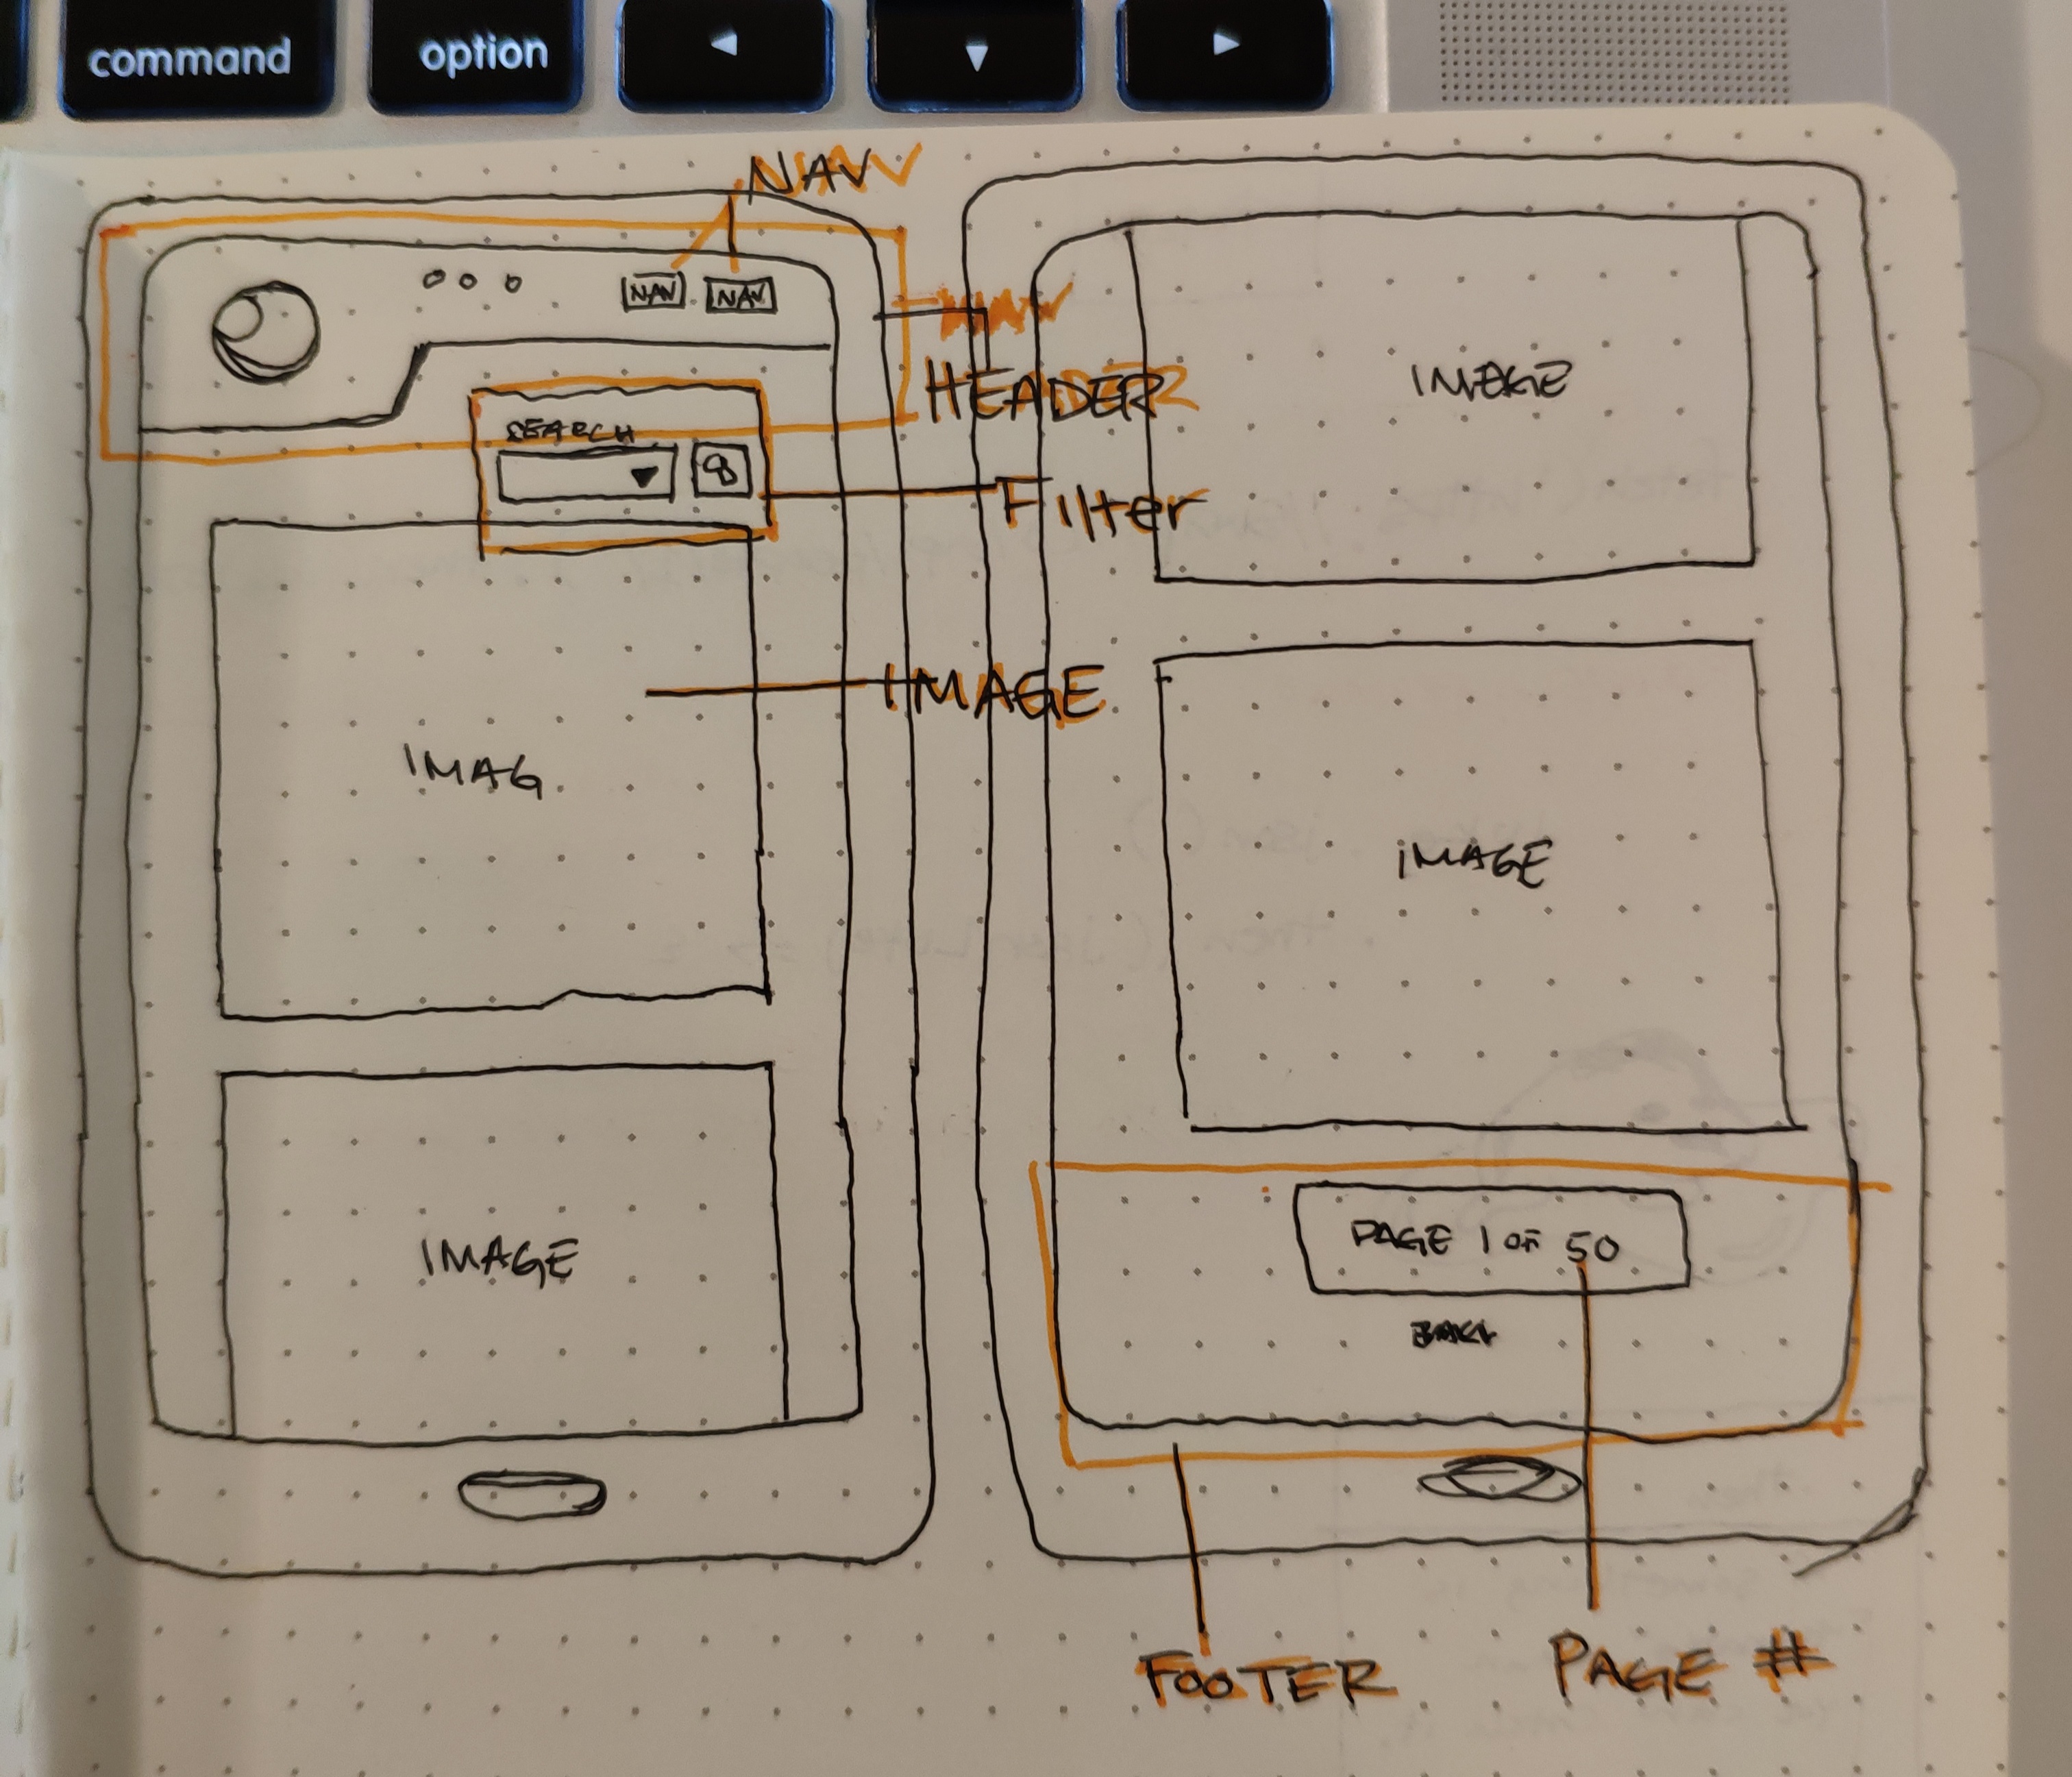 command
option
NAV
NAV
NAV
HEADER
SEARCH
Filter
IMAGE
IMAG
IMAGE
IMAGE
IMAGE
PAGE 1 OF 50
FOOTER
PAGE #